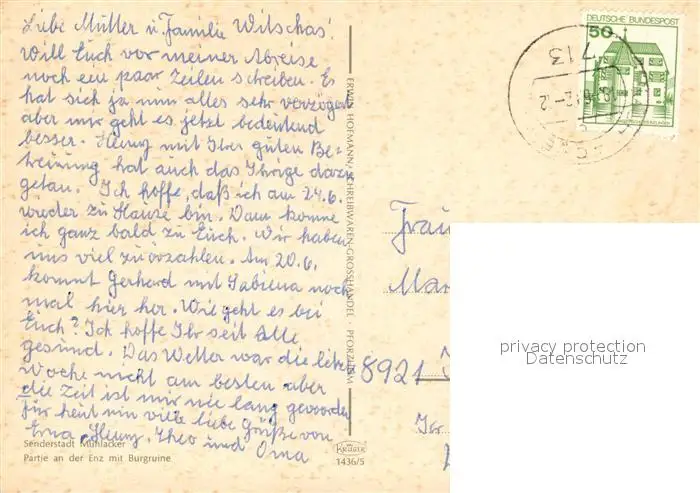 Liebe Mutter u. Familie Witschas!
Will Euch vor meiner Abreise
noch ein paar Zeilen schreiben. Es
hat sich ja nun alles sehr verzögert
aber mir geht es jetzt bedeutend
besser. Heinz mit Ihrer guten Be-
treuung hat auch das Ihrige dazu
getan. Ich hoffe, daß ich am 24.6.
wieder zu Hause bin. Dann komme
ich ganz bald zu Euch. Wir haben
uns viel zu erzählen. Am 20.6.
kommt Gerhard mit Sabiena noch
mal hier her. Wie geht es bei
Euch? Ich hoffe Ihr seit Alle
gesund. Das Wetter war die letzte
Woche nicht am besten aber
die Zeit ist mir nie lang geworden
Für heut nun viele liebe Grüße von
Erna, Heinz, Theo und Oma
Senderstadt Mühlacker
Partie an der Enz mit Burgruine
ERWIN HOFMANN, SCHREIBWAREN-GROSSHANDEL PFORZHEIM
KRÜGER
1436/5
DEUTSCHE BUNDESPOST
50
713
Frau
Mar
8921
privacy protection
Datenschutz